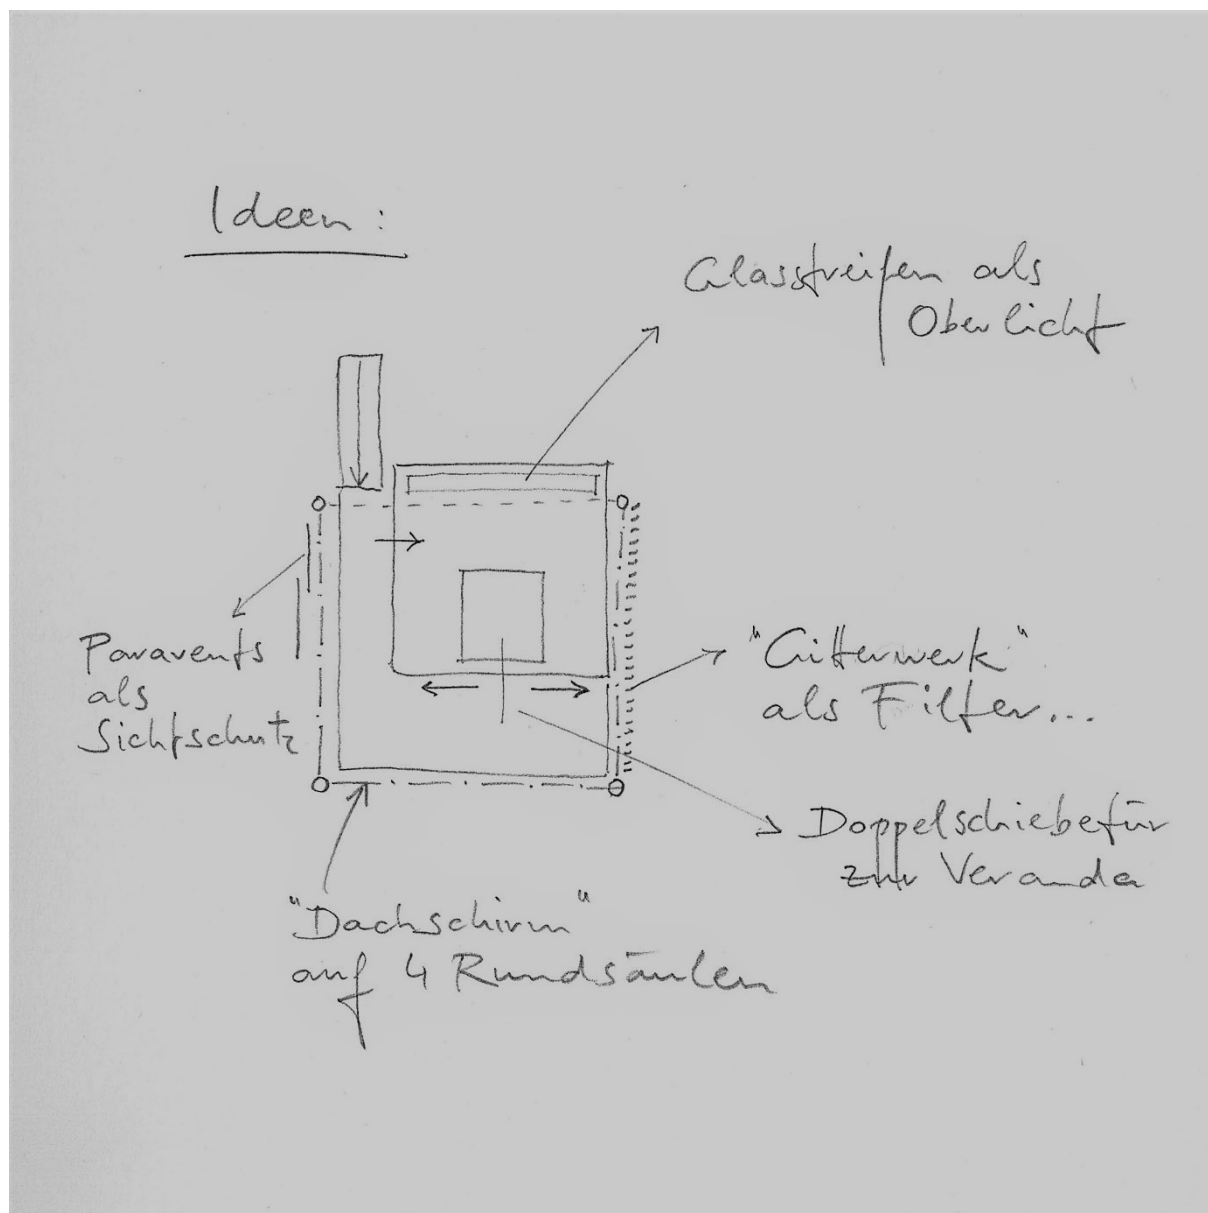 Ideen:
Glasstreifen als
Oberlicht
Paravents
als
Sichtschutz
"Gitterwerk"
als Filter...
Doppelschiebetür
zur Veranda
"Dachschirm"
auf 4 Rundsäulen